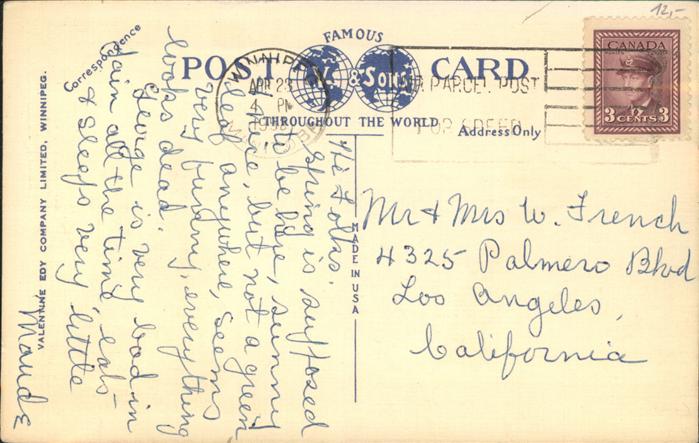 12,-
FAMOUS
POST CARD
V. & SONS
THROUGHOUT THE WORLD
Correspondence
Address Only
WINNIPEG
APR 23
4 PM
AIR PARCEL POST
FOR SPEED
CANADA
3 CENTS 3
Hi Folks.
Spring is supposed
to be here, sunny
& nice, but not a green
leaf anywhere, seems
very funny, everything
looks dead.
George is very bad in
pain all the time, eats
& sleeps very little
Maude
MADE IN USA
VALENTINE EDY COMPANY LIMITED, WINNIPEG.
Mr & Mrs W. French
4325 Palmero Blvd
Los Angeles,
California